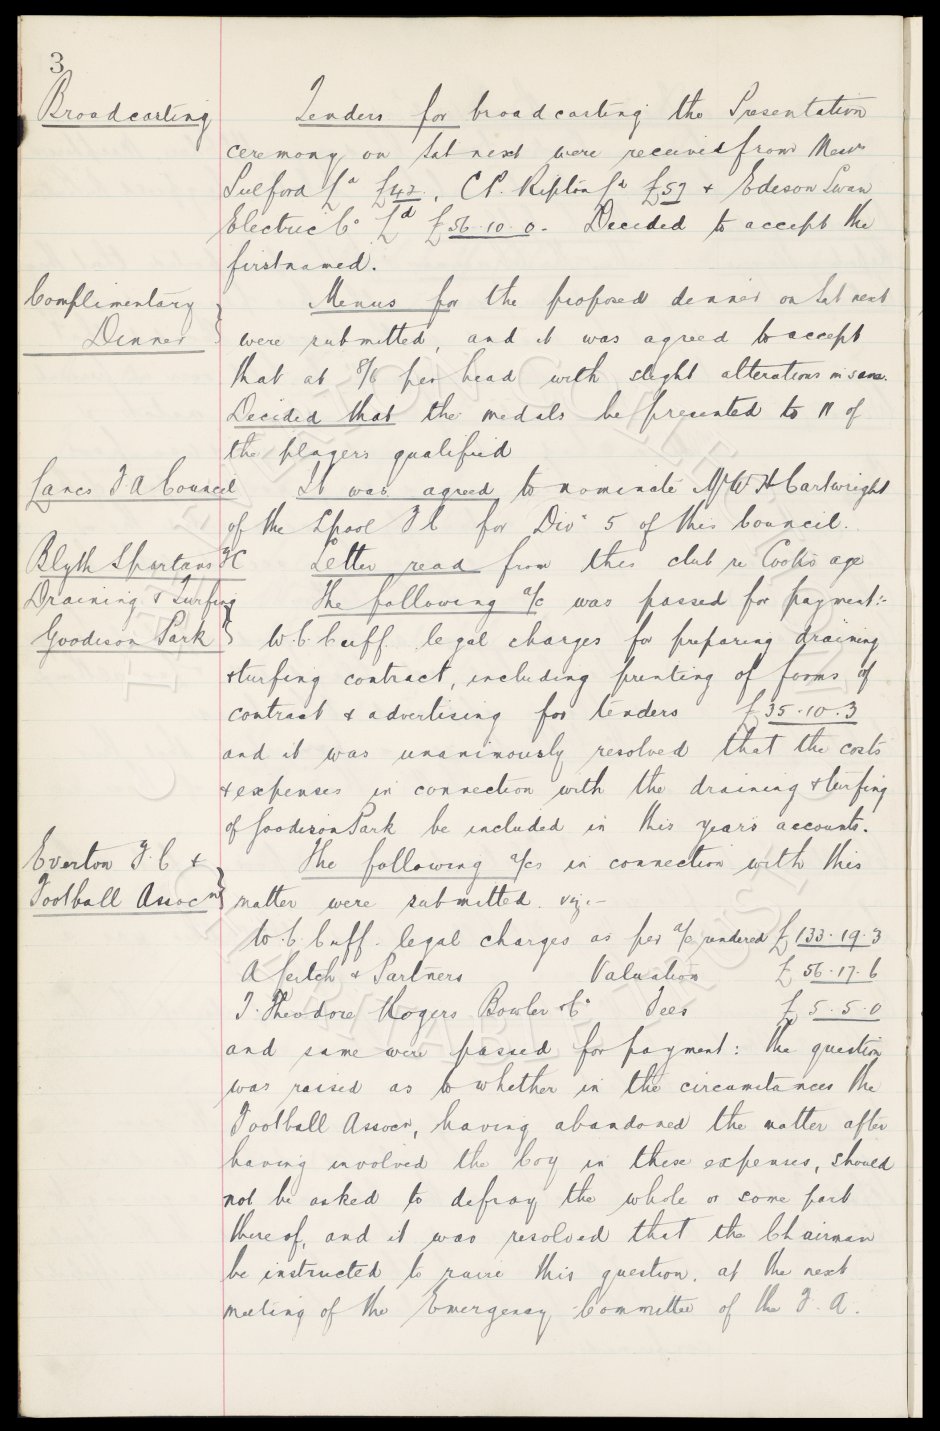 3
Broadcasting
Tenders for broadcasting the Presentation
ceremony on Sat next were received from Messrs
Sulford Ld £42, C P. Kipton Ld £57 & Edeson Swan
Electric Co Ld £56.10.0. Decided to accept the
firstnamed.
Complimentary
Dinner }
Menus for the proposed dinner on Sat next
were submitted, and it was agreed to accept
that at 8/6 per head with slight alterations in same.
Decided that the medals be presented to 11 of
the players qualified
Lancs F A Council
It was agreed to nominate Mr W H Cartwright
of the Lpool F C for Divn 5 of this Council.
Blyth Spartans FC
Letter read from this club re Cook's age
Draining & Turfing
Goodison Park }
The following a/c was passed for payment:-
W.C. Cuff. legal charges for preparing draining
& turfing contract, including printing of forms of
contract & advertising for tenders £35.10.3
and it was unanimously resolved that the costs
& expenses in connection with the draining & turfing
of Goodison Park be included in this year's accounts.
Everton F.C &
Football Assocn }
The following a/cs in connection with this
matter were submitted. viz:-
W.C. Cuff. legal charges as per a/c rendered £133.19.3
A Leitch & Partners Valuation £56.17.6
T. Theodore Rogers Bowler & Co Fees £5.5.0
and same were passed for payment: the question
was raised as to whether in the circumstances the
Football Assocn, having abandoned the matter after
having involved the Coy in these expenses, should
not be asked to defray the whole or some part
thereof, and it was resolved that the Chairman
be instructed to raise this question, at the next
meeting of the Emergency Committee of the F.A.